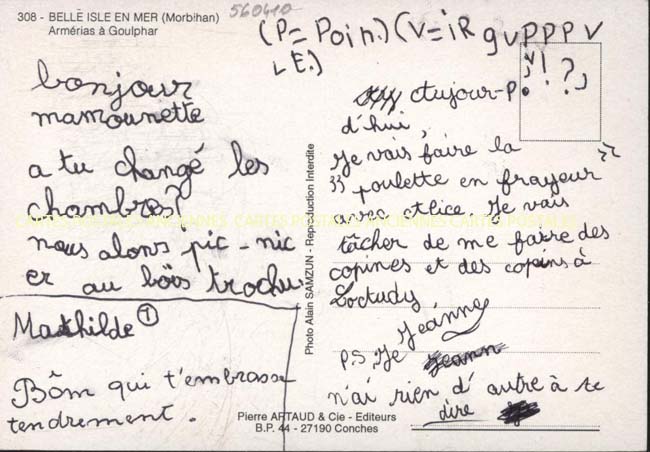 308 - BELLE ISLE EN MER (Morbihan)
Armérias à Goulphar
560410
(P= Poin.) (V=iR gvPPPV
LE.)
,v! ?,
.
bonjour
mamounette
a tu changé les
chambres?
nous alons pic-nic
er au bois trochu
Mathilde ①
Bôm qui t'embrasse
tendrement.
Photo Alain SAMZUN - Reproduction Interdite
aujour-P.
d'hui,
Je vais faire la
" poulette en frayeur "
avec Je vais
tâcher de me faire des
copines et des copins à
Loctudy
Jeanne
P.S. Je
n'ai rien d'autre à te
dire
Pierre ARTAUD & Cie - Editeurs
B.P. 44 - 27190 Conches
CARTES POSTALES ANCIENNES CARTES POSTALES ANCIENNES CARTES POSTALES